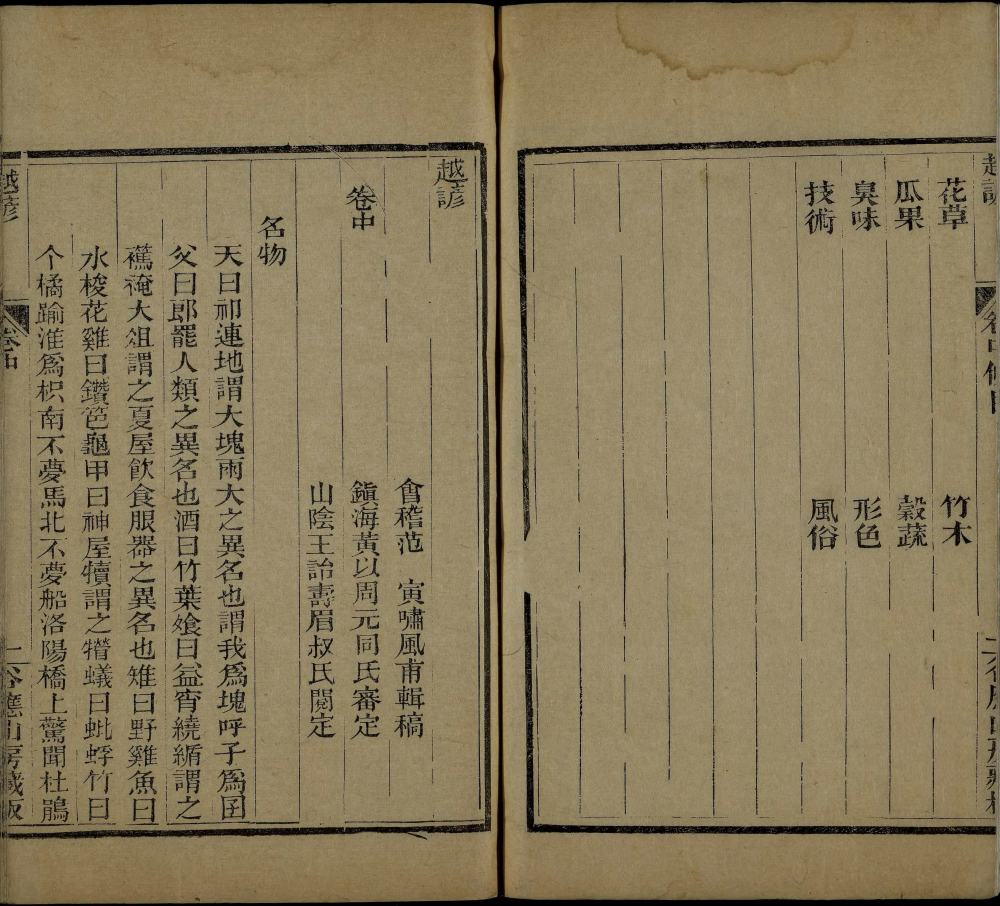 花草　竹木
瓜果　穀蔬
臭味　形色
技術　風俗
越諺
會稽范　寅嘯風甫輯稿
卷中　鎮海黃以周元同氏審定
山陰王詒壽眉叔氏閱定
名物
天曰祁連地謂大塊兩大之異名也謂我爲塊呼子爲囝
父曰郎罷人類之異名也酒曰竹葉曰益繞謂之
大俎謂之夏屋飲食服器之異名也雉曰野雞魚曰
水梭花雞曰鑽笆龜甲曰神屋犢謂之蟻曰蚍蜉竹曰
个橘踰淮爲枳南不夢馬北不夢船洛陽橋上驚聞杜鵑
越諺　卷中　二　谷應山房藏板